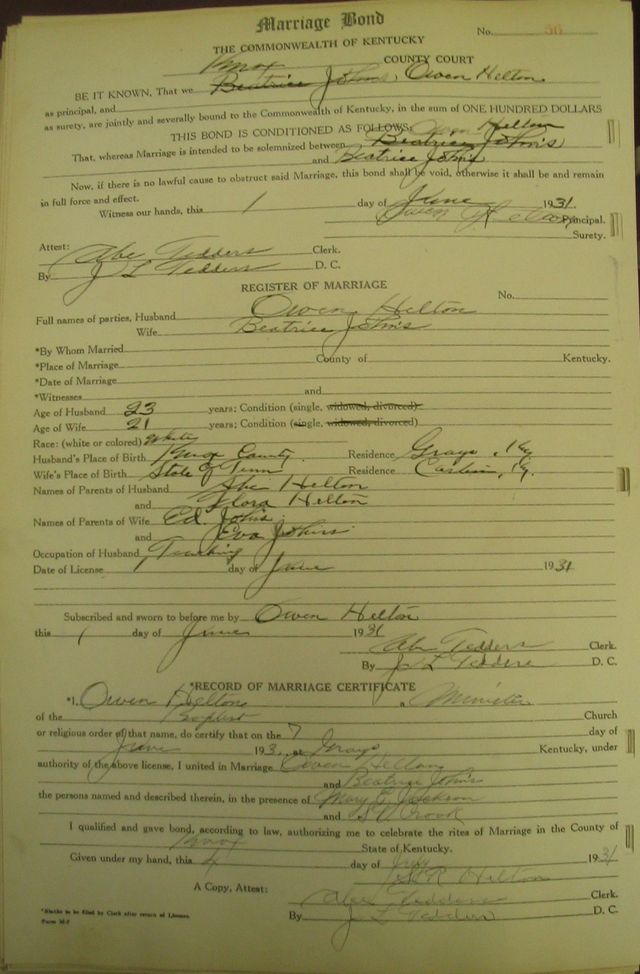 Marriage Bond
No. 56
THE COMMONWEALTH OF KENTUCKY
Knox COUNTY COURT
BE IT KNOWN, That we Beatrice Johns, Owen Helton
as principal, and
as surety, are jointly and severally bound to the Commonwealth of Kentucky, in the sum of ONE HUNDRED DOLLARS
THIS BOND IS CONDITIONED AS FOLLOWS: Owen Helton
That, whereas Marriage is intended to be solemnized between Beatrice Johns
and Beatrice Johns
Now, if there is no lawful cause to obstruct said Marriage, this bond shall be void, otherwise it shall be and remain
in full force and effect.
Witness our hands, this 1 day of June 1931.
Owen Helton Principal.
Surety.
Attest:
Abe Tedders Clerk.
By J L Tedders D. C.
REGISTER OF MARRIAGE
No.
Full names of parties, Husband Owen Helton
Wife Beatrice Johns
*By Whom Married
*Place of Marriage County of Kentucky.
*Date of Marriage
*Witnesses and
Age of Husband 23 years; Condition (single, widowed, divorced)
Age of Wife 21 years; Condition (single, widowed, divorced)
Race: (white or colored) White
Husband's Place of Birth Knox County Residence Grays, Ky
Wife's Place of Birth State of Tenn Residence Corbin, Ky.
Names of Parents of Husband Helton
and Flora Helton
Names of Parents of Wife Ed. Johns
and Eva Johns
Occupation of Husband
Date of License 1 day of June 1931
Subscribed and sworn to before me by Owen Helton
this 1 day of June 1931
Abe Tedders Clerk.
By J L Tedders D. C.
*RECORD OF MARRIAGE CERTIFICATE
*I, Owen Helton a Minister
of the Baptist Church
or religious order of that name, do certify that on the 7 day of
June 193 , at Grays Kentucky, under
authority of the above license, I united in Marriage Owen Helton
and Beatrice Johns
the persons named and described therein, in the presence of Mary E Jackson
and Crook
I qualified and gave bond, according to law, authorizing me to celebrate the rites of Marriage in the County of
Knox State of Kentucky.
Given under my hand, this day of 1931
Helton
A Copy, Attest: Abe Tedders Clerk.
By J L Tedders D. C.
*Blanks to be filled by Clerk after return of License.
Form M-2